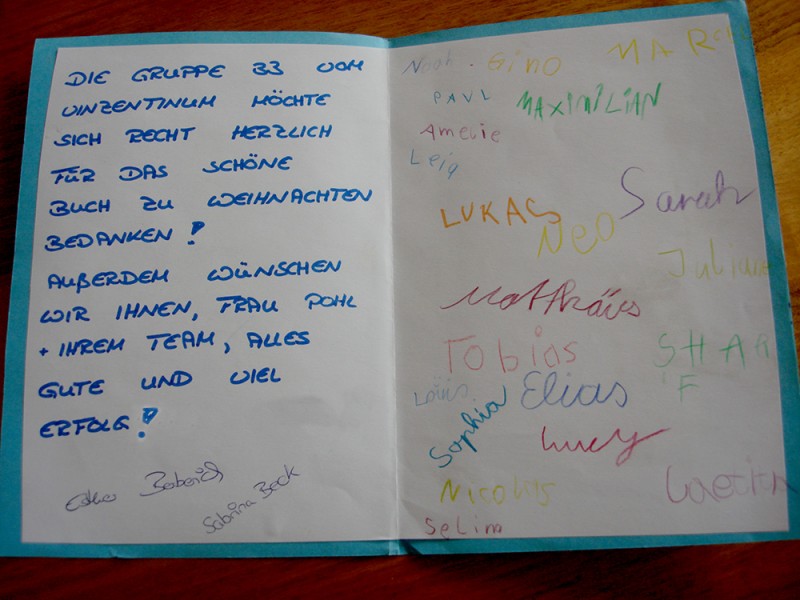 DIE GRUPPE 33 VOM
VINZENTINUM MÖCHTE
SICH RECHT HERZLICH
FÜR DAS SCHÖNE
BUCH ZU WEIHNACHTEN
BEDANKEN!
AUßERDEM WÜNSCHEN
WIR IHNEN, FRAU POHL
+ IHREM TEAM, ALLES
GUTE UND VIEL
ERFOLG!
Sabrina Beck
Noah. Gino MARC
PAUL MAXIMILIAN
Amelie
LUKAS Sarah
Neo
Matthäus
Tobias
Louis. Elias
Sophia
Lucy
Nicolas
Selim